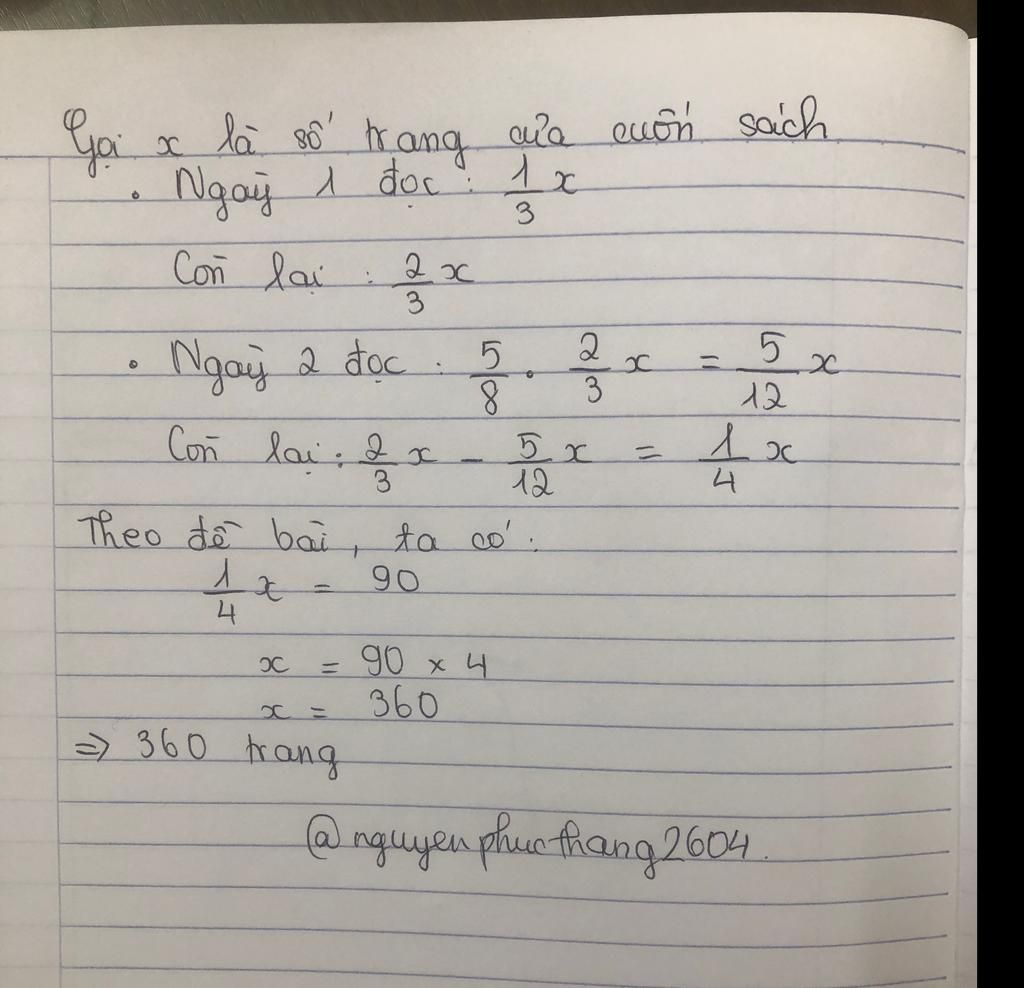 Gọi x là số trang của cuốn sách
• Ngày 1 đọc : 1/3 x
Còn lại : 2/3 x
• Ngày 2 đọc : 5/8 . 2/3 x = 5/12 x
Còn lại : 2/3 x - 5/12 x = 1/4 x
Theo đề bài, ta có :
1/4 x = 90
x = 90 × 4
x = 360
=> 360 trang
@nguyenphucthang2604.